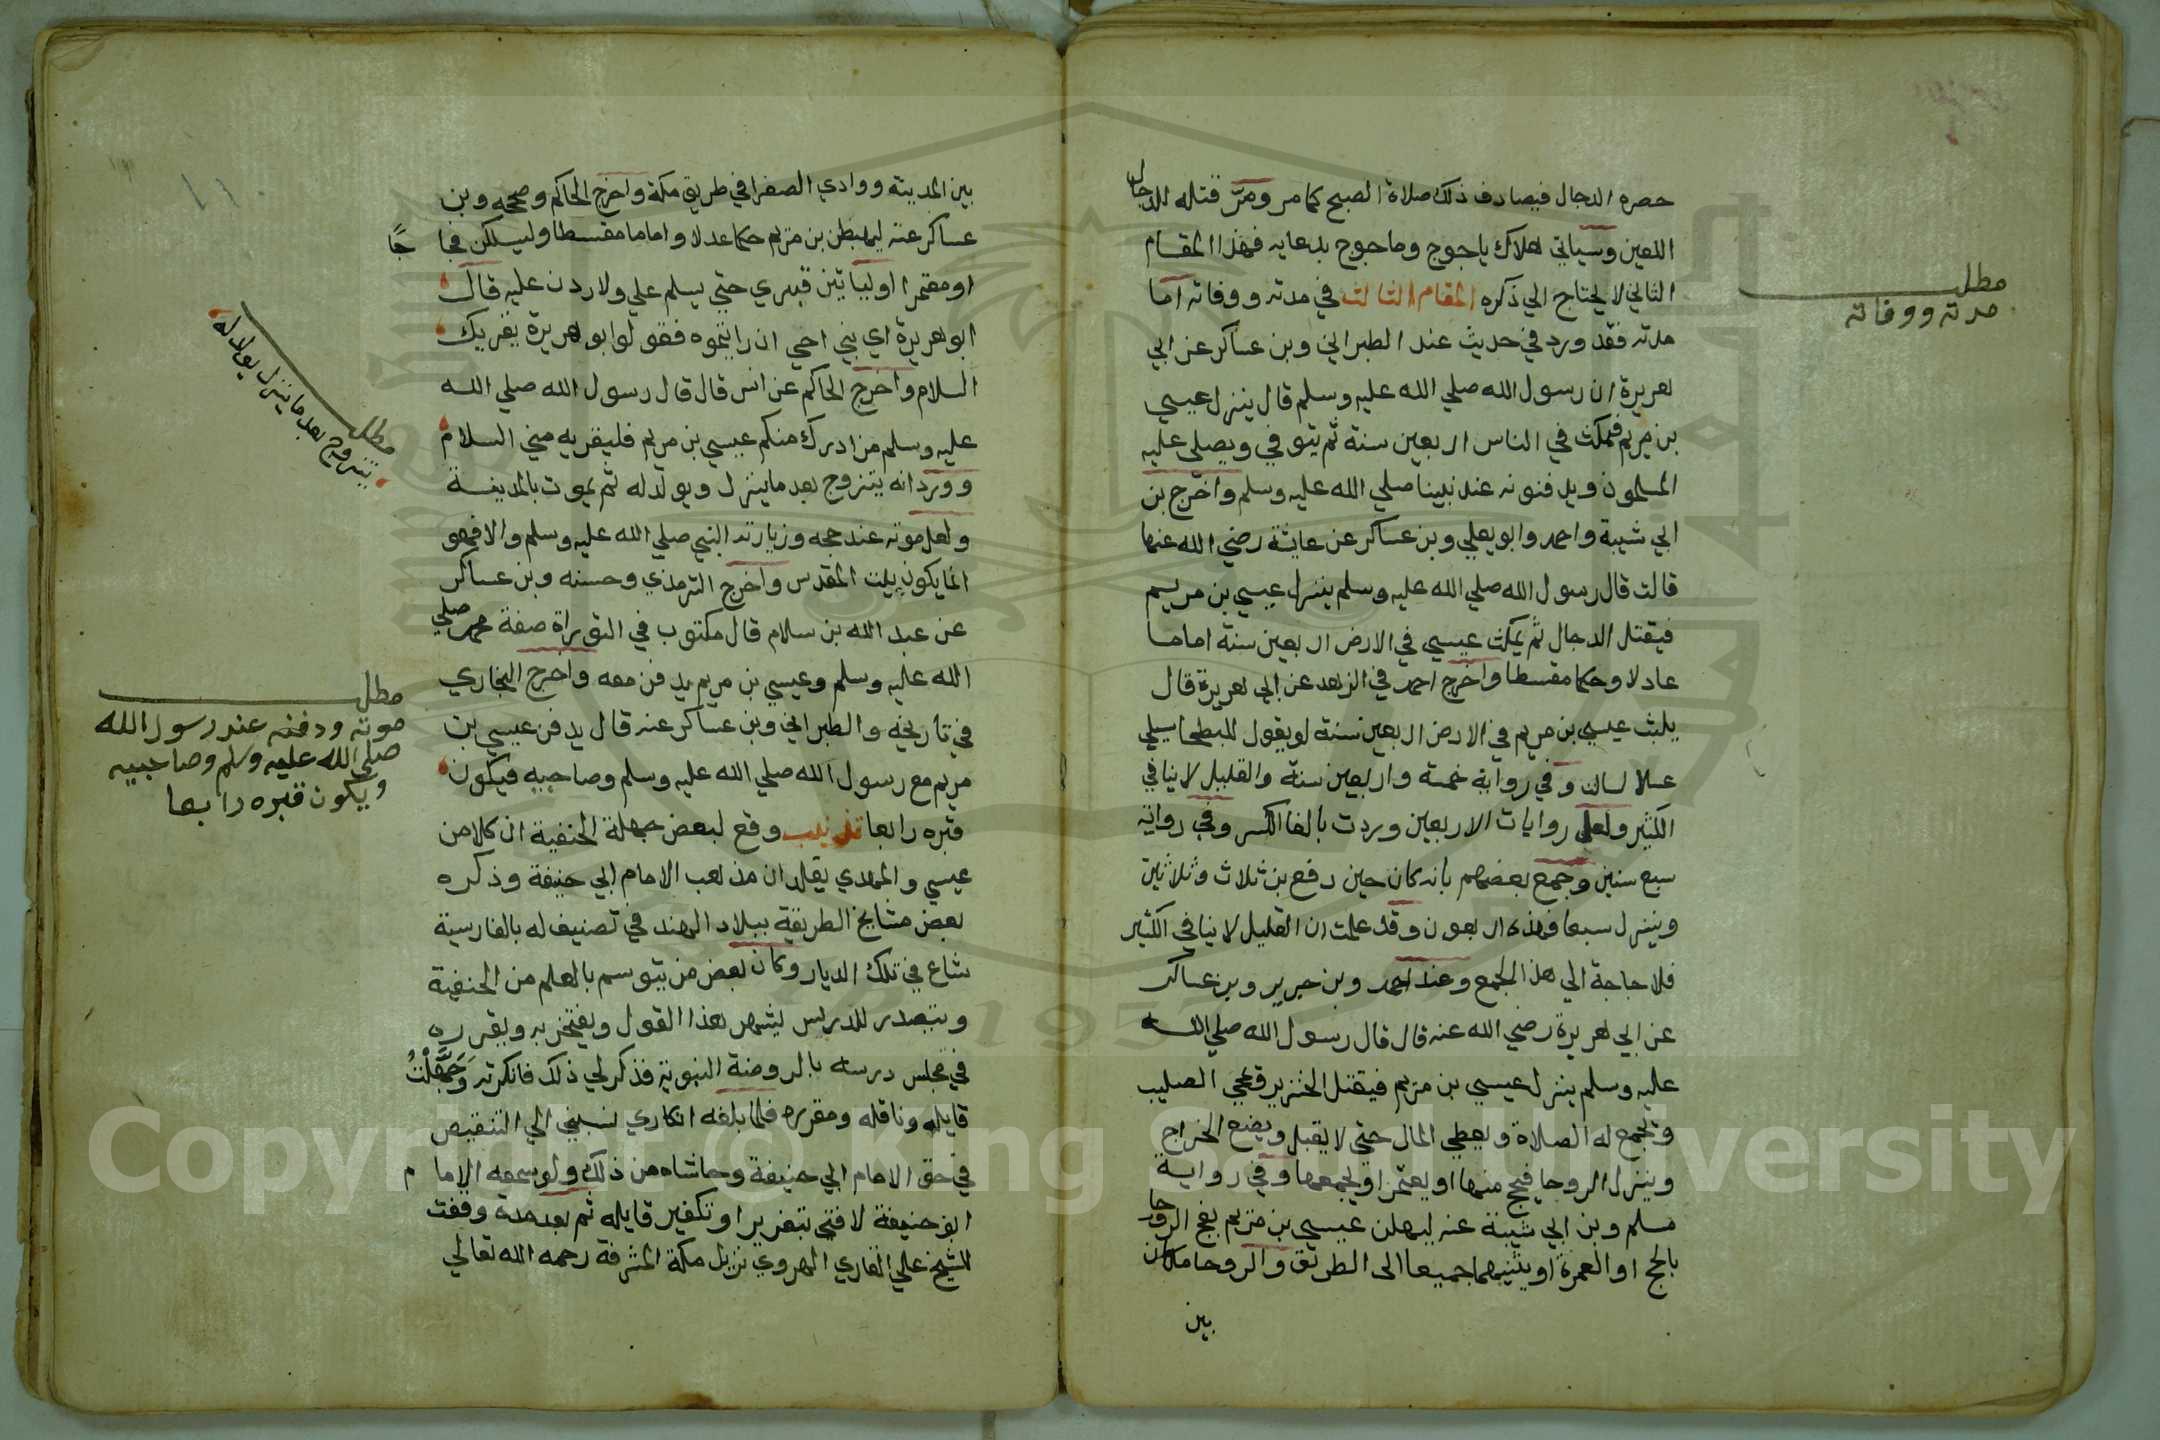 حصره الدجال فيصادف ذلك صلاة الصبح كما مر ومر قتله للدجال
اللعين وسياتي هلاك ياجوج وماجوج بدعايه فهذا المقام
الثاني لا يحتاج الي ذكره المقام الثالث في مدته ووفاته اما
مدته فقد ورد في حديث عند الطبراني وبن عساكر عن ابي
هريرة ان رسول الله صلي الله عليه وسلم قال ينزل عيسي
بن مريم فيمكث في الناس اربعين سنة ثم يتوفي ويصلي عليه
المسلمون ويدفنونه عند نبينا صلي الله عليه وسلم واخرج بن
ابي شيبة واحمد وابو يعلي وبن عساكر عن عايشة رضي الله عنها
قالت قال رسول الله صلي الله عليه وسلم ينزل عيسي بن مريم
فيقتل الدجال ثم يمكث عيسي في الارض اربعين سنة اماما
عادلا وحكما مقسطا واخرج احمد في الزهد عن ابي هريرة قال
يلبث عيسي بن مريم في الارض اربعين سنة لو يقول للبطحا سيلي
عسلا لسالت وفي رواية خمسة واربعين سنة والقليل لا ينافي
الكثير ولعل روايات الاربعين وردت بالغا الكسر وفي رواية
سبع سنين وجمع بعضهم بانه كان حين رفع بن ثلاث وثلاثين
وينزل سبعا فهذه اربعون وقد علمت ان القليل لا ينافي الكثير
فلا حاجة الي هذا الجمع وعند احمد وبن جرير وبن عساكر
عن ابي هريرة رضي الله عنه قال قال رسول الله صلي الله
عليه وسلم ينزل عيسي بن مريم فيقتل الخنزير ويمحي الصليب
وتجمع له الصلاة ويعطي المال حتي لا يقبل ويضع الخراج
وينزل الروحا فيحج منها او يعتمر او يجمعها وفي رواية
مسلم وبن ابي شيبة عنه ليهلن عيسي بن مريم بفج الروحا
بالحج او العمرة او يثنيهما جميعا الى الطريق والروحا مكان
بين
مطلب
مدته ووفاته
بين المدينة ووادي الصفرا في طريق مكة واخرج الحاكم وصححه وبن
عساكر عنه ليهبطن بن مريم حكما عدلا واماما مقسطا وليسلكن فجا
حاجا
او معتمرا او لياتين قبري حتي يسلم علي ولاردن عليه قال
ابو هريرة اي بني اخي ان رايتموه فقولوا ابو هريرة يقريك
السلام واخرج الحاكم عن انس قال قال رسول الله صلي الله
عليه وسلم من ادرك منكم عيسي بن مريم فليقريه مني السلام
وورد انه يتزوج بعد ما ينزل ويولد له ثم يموت بالمدينة
ولعل موته عند حجه وزيارته النبي صلي الله عليه وسلم والا فهو
انما يكون ببيت المقدس واخرج الترمذي وحسنه وبن عساكر
عن عبد الله بن سلام قال مكتوب في التوراة صفة محمد صلي
الله عليه وسلم وعيسي بن مريم يدفن معه واخرج البخاري
في تاريخه والطبراني وبن عساكر عنه قال يدفن عيسي بن
مريم مع رسول الله صلي الله عليه وسلم وصاحبيه فيكون
قبره رابعا تذنيب وقع لبعض جهلة الحنفية ان كلا من
عيسي والمهدي يقلدان مذهب الامام ابي حنيفة وذكره
بعض مشايخ الطريقة ببلاد الهند في تصنيف له بالفارسية
شاع في تلك الديار وكان بعض من يتوسم بالعلم من الحنفية
ويتصدر للدريس يشهر هذا القول ويفتخر به ويقرره
في مجلس درسه بالروضة النبوية فذكر لي ذلك فانكرته وجهلت
قايله وناقله ومقرره فلما بلغه انكاري نسبني الي التنقيص
في حق الامام ابي حنيفة وحاشاه من ذلك ولو سمعه الامام
ابو حنيفة لافتي بتعزير او تكفير قايله ثم بعد مدة وقفت
للشيخ علي القاري الهروي نزيل مكة المشرفة رحمه الله تعالي
مطلب
يتزوج بعد ما ينزل يولد له
مطلب
موته ودفنه عند رسول الله
صلي الله عليه وسلم وصاحبيه
ويكون قبره رابعا
Copyright © King Saud University
1957